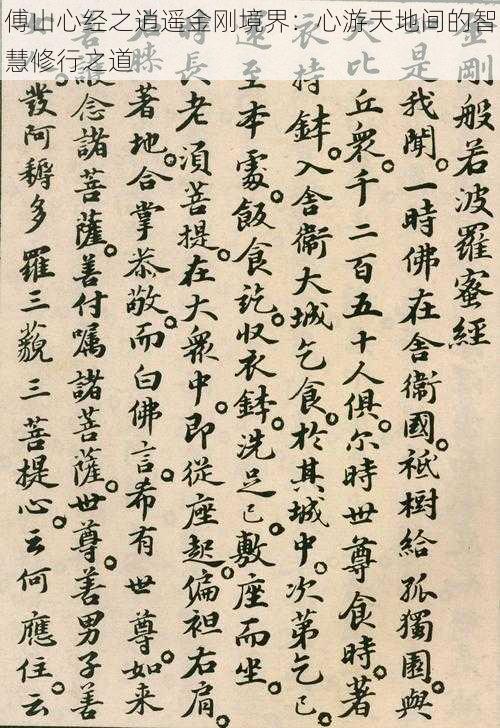 傅山心经之逍遥金刚境界：心游天地间的智
慧修行之道
剛般若波羅蜜經
是我聞。一時佛在舍衞國。祇樹給孤獨園。與
大比丘衆。千二百五十人俱。尒時世尊食時。著
衣持鉢。入舍衞大城乞食。於其城中。次第乞已。
還至本處。飯食訖。収衣鉢。洗足已。敷座而坐。
時長老須菩提。在大衆中。即從座起。偏袒右肩。
右膝著地。合掌恭敬。而白佛言。希有世尊。如来
善護念諸菩薩。善付囑諸菩薩。世尊。善男子善
發阿耨多羅三藐三菩提心。云何應住。云